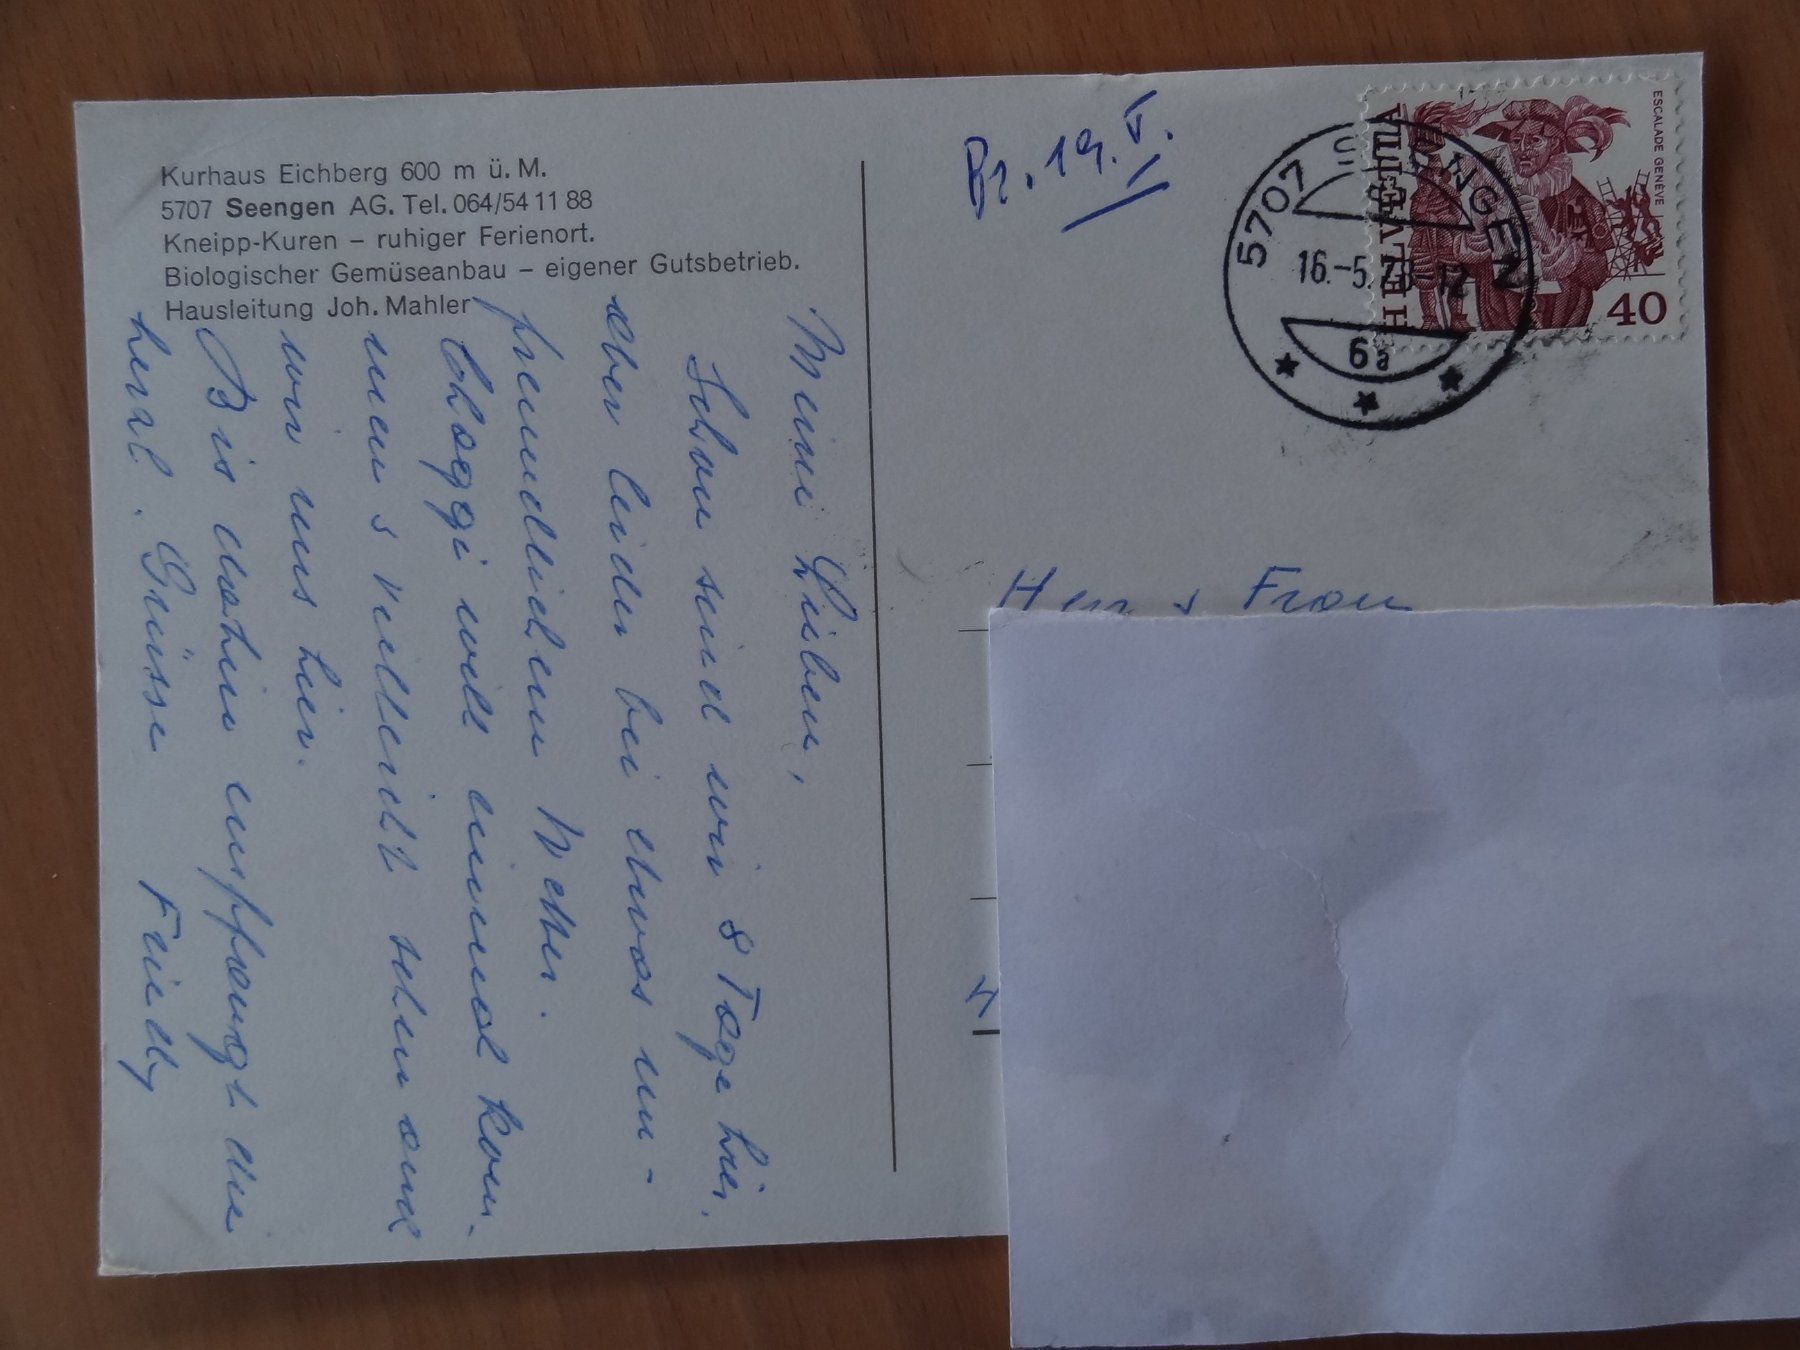 Kurhaus Eichberg 600 m ü. M.
5707 Seengen AG. Tel. 064/54 11 88
Kneipp-Kuren – ruhiger Ferienort.
Biologischer Gemüseanbau – eigener Gutsbetrieb.
Hausleitung Joh. Mahler
Meine Lieben,
Schon sind wir 8 Tage hier,
aber leider bei etwas un-
freundlichem Wetter.
will einmal kom-
men & vielleicht sehen auch
wir uns hier.
Bis dahin empfangt die
herzl. Grüsse Friedy
19. V.
5707 SEENGEN
16.-5.7 -12
6a
HELVETIA
ESCALADE GENÈVE
40
Herr & Frau